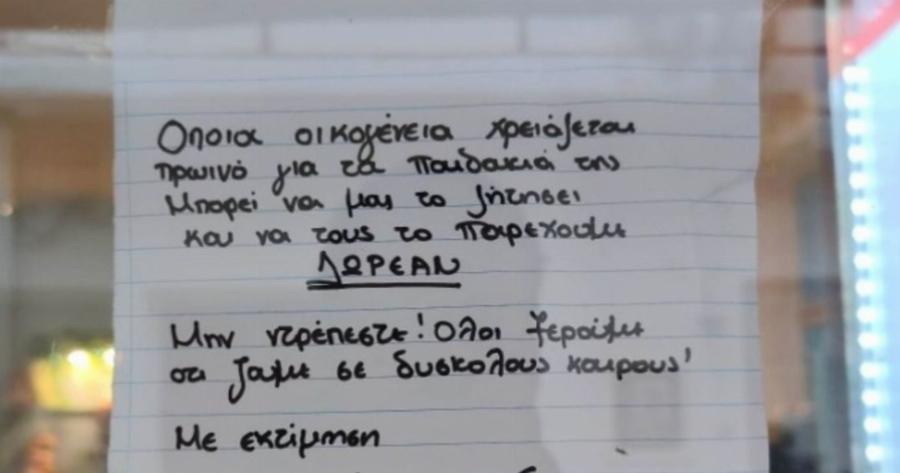 Οποια οικογένεια χρειάζεται
πρωινό για τα παιδακιά της
Μπορεί να μας το ζήτησει
και να τους το παρεχουμε
ΔΩΡΕΑΝ
Μην ντρέπεστε! Ολοι ξερουμε
οτι ζαμε σε δυσκολους καιρους'
Με εκτίμηση